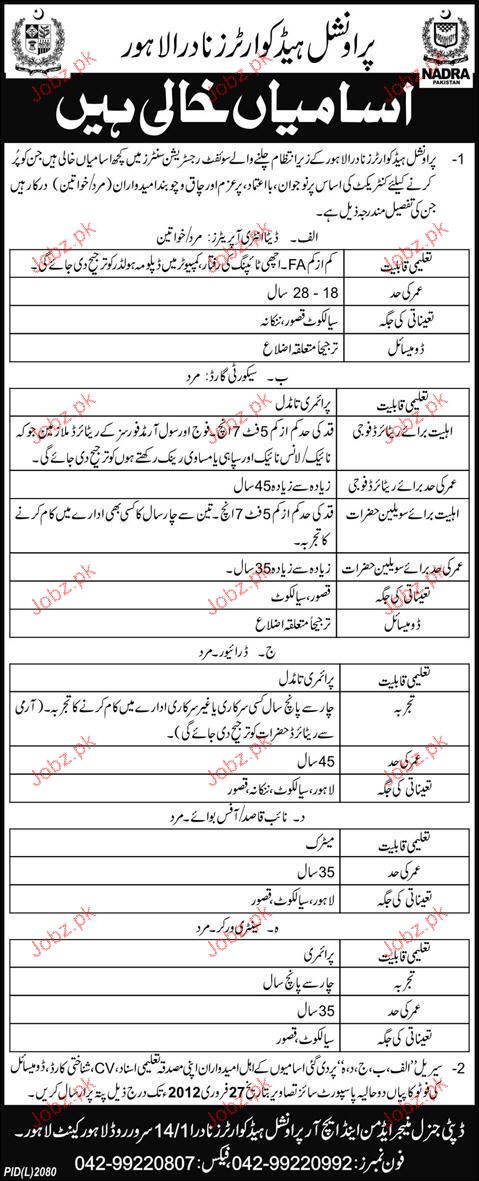 پراونشل ہیڈ کوارٹرز نادرا لاہور
NADRA
PAKISTAN
اسامیاں خالی ہیں
1- پراونشل ہیڈ کوارٹرز نادرا لاہور کے زیر انتظام چلنے والے سوئفٹ رجسٹریشن سنٹرز میں کچھ اسامیاں خالی ہیں جن کو پُر
کرنے کیلئے کنٹریکٹ کی اساس پر نوجوان، بااعتماد، پرعزم اور چاق و چوبند امیدواران (مرد/خواتین) درکار ہیں
جن کی تفصیل مندرجہ ذیل ہے۔
الف۔ ڈیٹا انٹری آپریٹرز: مرد/خواتین
تعلیمی قابلیت کم از کم FA۔ اچھی ٹائپنگ کی رفتار، کمپیوٹر میں ڈپلومہ ہولڈر کو ترجیح دی جائے گی۔
عمر کی حد 18 - 28 سال
تعیناتی کی جگہ سیالکوٹ، قصور، ننکانہ
ڈومیسائل ترجیحاً متعلقہ اضلاع
ب۔ سیکورٹی گارڈ: مرد
تعلیمی قابلیت پرائمری تا مڈل
اہلیت برائے ریٹائرڈ فوجی قد کی حد کم از کم 5 فٹ 7 انچ۔ فوج اور سول آرمڈ فورسز کے ریٹائرڈ ملازمین جو کہ
نائیک/لانس نائیک اور سپاہی یا مساوی رینک رکھتے ہوں کو ترجیح دی جائے گی۔
عمر کی حد برائے ریٹائرڈ فوجی زیادہ سے زیادہ 45 سال
اہلیت برائے سویلین حضرات قد کی حد کم از کم 5 فٹ 7 انچ۔ تین سے چار سال کا کسی بھی ادارے میں کام کرنے
کا تجربہ۔
عمر کی حد برائے سویلین حضرات زیادہ سے زیادہ 35 سال۔
تعیناتی کی جگہ قصور، سیالکوٹ
ڈومیسائل ترجیحاً متعلقہ اضلاع
ج۔ ڈرائیور۔ مرد
تعلیمی قابلیت پرائمری تا مڈل
تجربہ چار سے پانچ سال کسی سرکاری یا غیر سرکاری ادارے میں کام کرنے کا تجربہ۔ (آرمی
سے ریٹائرڈ حضرات کو ترجیح دی جائے گی)۔
عمر کی حد 45 سال
تعیناتی کی جگہ لاہور، سیالکوٹ، ننکانہ، قصور
د۔ نائب قاصد/آفس بوائے۔ مرد
تعلیمی قابلیت میٹرک
عمر کی حد 35 سال
تعیناتی کی جگہ لاہور، سیالکوٹ، قصور
ہ۔ سینٹری ورکر۔ مرد
تعلیمی قابلیت پرائمری
تجربہ چار سے پانچ سال
عمر کی حد 35 سال
تعیناتی کی جگہ سیالکوٹ، قصور
2- سیریل "الف، ب، ج، د، ہ" پر دی گئی اسامیوں کے اہل امیدواران اپنی مصدقہ تعلیمی اسناد، CV، شناختی کارڈ، ڈومیسائل
کی فوٹو کاپیاں دو حالیہ پاسپورٹ سائز تصاویر بتاریخ 27 فروری 2012ء تک درج ذیل پتہ پر ارسال کریں۔
ڈپٹی جنرل منیجر ایڈمن اینڈ ایچ آر پراونشل ہیڈ کوارٹرز نادرا 14/1 سرور روڈ لاہور کینٹ لاہور۔
فون نمبرز: 042-99220992، فیکس: 042-99220807
PID(L)2080
Jobz.pk